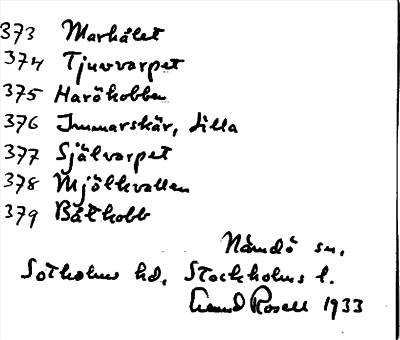 373 Marhålet
374 Tjuvvarpet
375 Haröhobben
376 Immarskär, Lilla
377 Självarpet
378 Mjölkvallen
379 Båthobb
Nämdö sn.
Sotholms hd. Stockholms l.
Rosell 1933